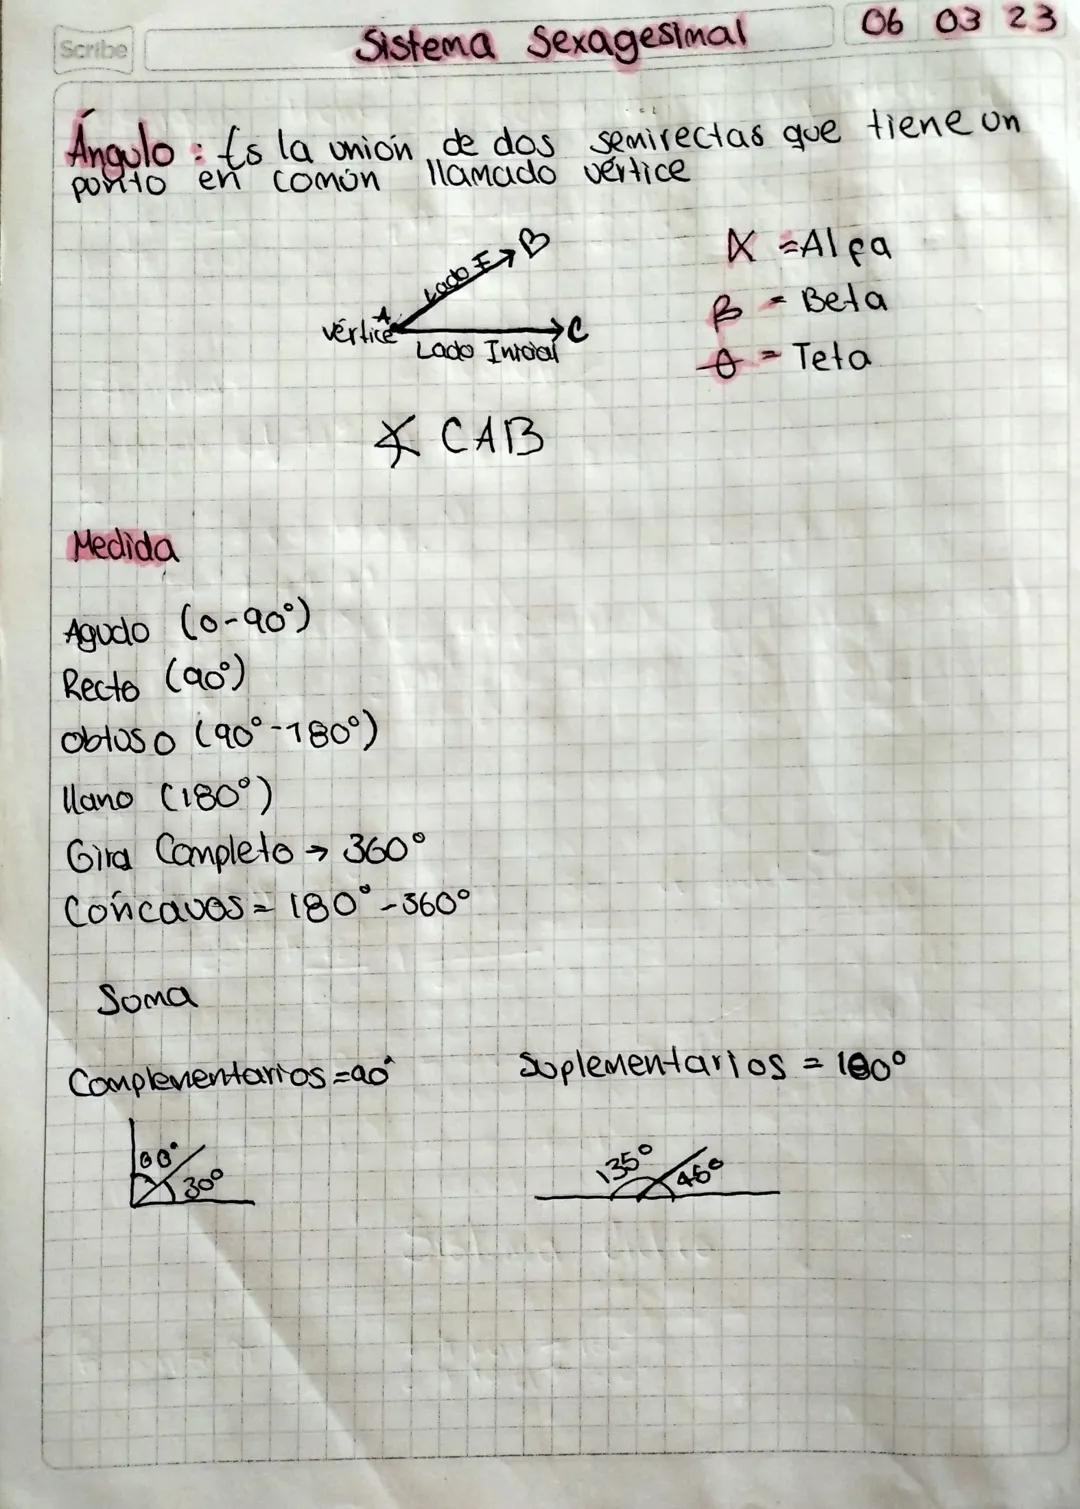 Scribe
Sistema Sexagesimal
06 03 23
Ángulo : Es la unión de dos semirectas que tiene un
punto en común llamado vértice
B
Lado F
A
vértice
C
Lado Inicial
α = Alfa
β = Beta
θ = Teta
∡ CAB
Medida
Agudo (0-90°)
Recto (90°)
Obtuso (90°-180°)
llano (180°)
Gira Completo → 360°
Cóncavos = 180°-360°
Suma
Complementarios = 90°
Suplementarios = 180°
30°
135°
45°